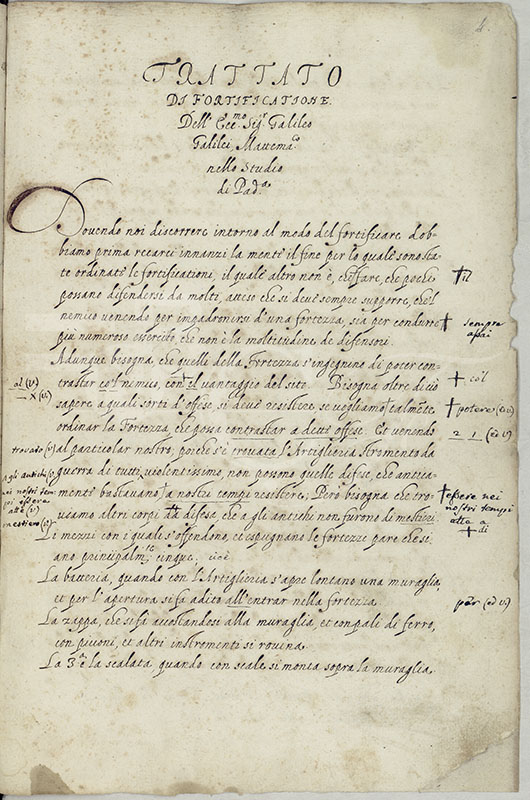 4.
TRATTATO
DI FORTIFICATIONE.
Dell' Ecc.mo Sig.r Galileo
Galilei, Mattema.co
nello Studio
di Pad.a
Dovendo noi discorrere intorno al modo del fortificare, dob-
biamo prima recarci innanzi la mente il fine per lo quale sono sta-
te ordinate le fortificationi, il quale altro non è, che fare, che pochi
possano difendersi da molti, atteso che si deve sempre supporre, che'l
nemico venendo per impadronirsi d'una fortezza, sia per condurre
più numeroso essercito, che non è la moltitudine de difensori.
Adunque bisogna, che quelli della Fortezza s'ingegnino di poter con-
trastar co'l nemico, con el vantaggio del sito. Bisogna oltre di ciò
sapere a quali sorti d'offese si deve resistere, se vogliamo talmente
ordinar la Fortezza, che possa contrastar a dette offese. Et venendo
al particolar nostro; poiche s'è trovata l'Artiglieria stromento da
guerra di tutti violentissimo, non possono quelle difese, che antica-
mente bastavano a nostri tempi resistere; Però bisogna che tro-
viamo altri corpi da difesa, che a gli antichi non furono di mestieri.
Li mezzi con i quali s'offendono, et espugnano le fortezze pare che si-
ano principalm.te cinque. cioè
La batteria, quando con l'Artiglieria s'apre lontano una muraglia,
et per l'apertura si fa adito all'entrar nella fortezza.
La zappa, che si fa accostandosi alla muraglia, et con pali di ferro,
con picconi, et altri instromenti si rovina.
La 3.a è la scalata quando con scale si monta sopra la muraglia.
il
sempre
assai
co'l
potere (ed u)
2 1 (ed u)
essere nei
nostri tempi
atta a
di
per (ed u)
al (u)
X (u)
trovato (u)
a gli antichi (u)
nei nostri tem
pi essere
atte (u)
mestiero (u)